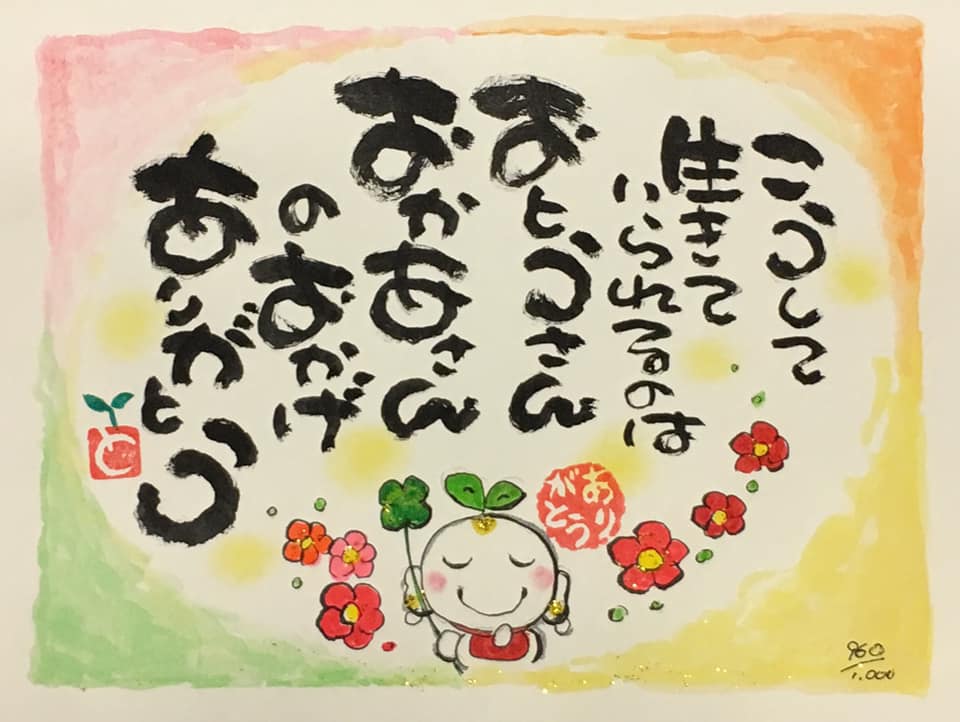 こうして
生きて
いられるのは
おとうさん
おかあさん
のおかげ
ありがとう
と
ありがとう
960
1.000